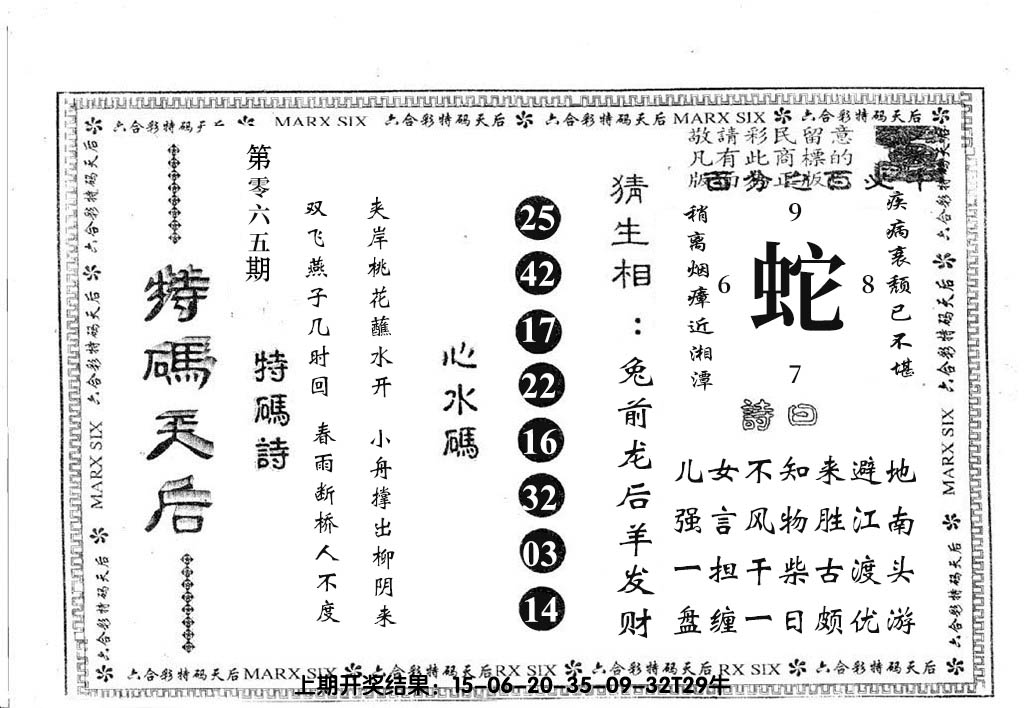 六合彩特码天后 MARX SIX 六合彩特码天后 六合彩特码天后 MARX SIX 六合彩特码天后
敬請彩民留意
凡有此商標的
版面為正版
六合彩特码天后 MARX SIX 六合彩特码天后
特碼天后
第零六五期
特碼詩
双飞燕子几时回 春雨断桥人不度
夹岸桃花蘸水开 小舟撑出柳阴来
心水碼
25
42
17
22
16
32
03
14
猜生相：兔前龙后羊发财
稍离烟瘴近湘潭
9
6 蛇 8
7
疾病衰颓已不堪
詩曰
儿女不知来避地
强言风物胜江南
一担干柴古渡头
盘缠一日颇优游
六合彩特码天后 MARX SIX 六合彩特码天后
六合彩特码天后MARX SIX 六合彩特码天后RX SIX 六合彩特码天后RX SIX 六合彩特码天后
上期开奖结果：15-06-20-35-09-32T29牛